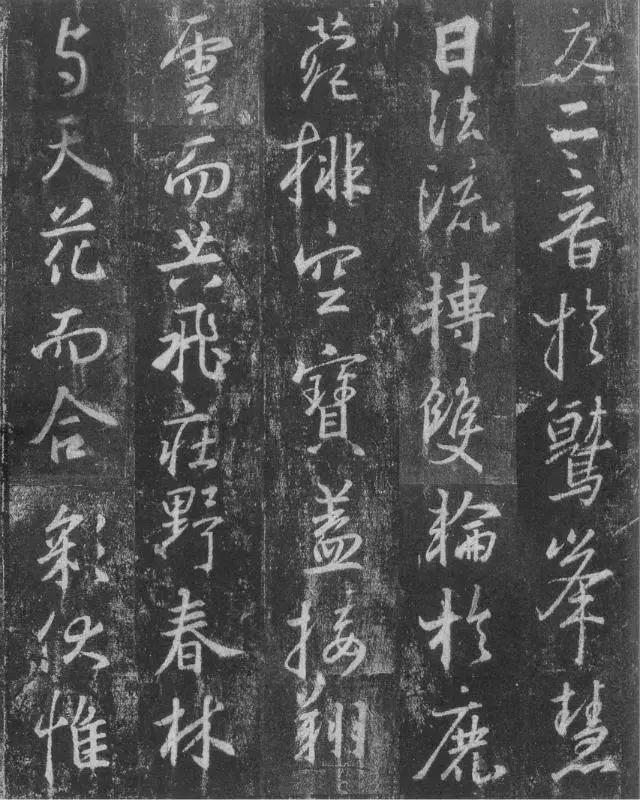 交二音於鷲峯慧
日法流轉雙輪於鹿
菀排空寶盖接翔
雲而共飛莊野春林
与天花而合彩伏惟